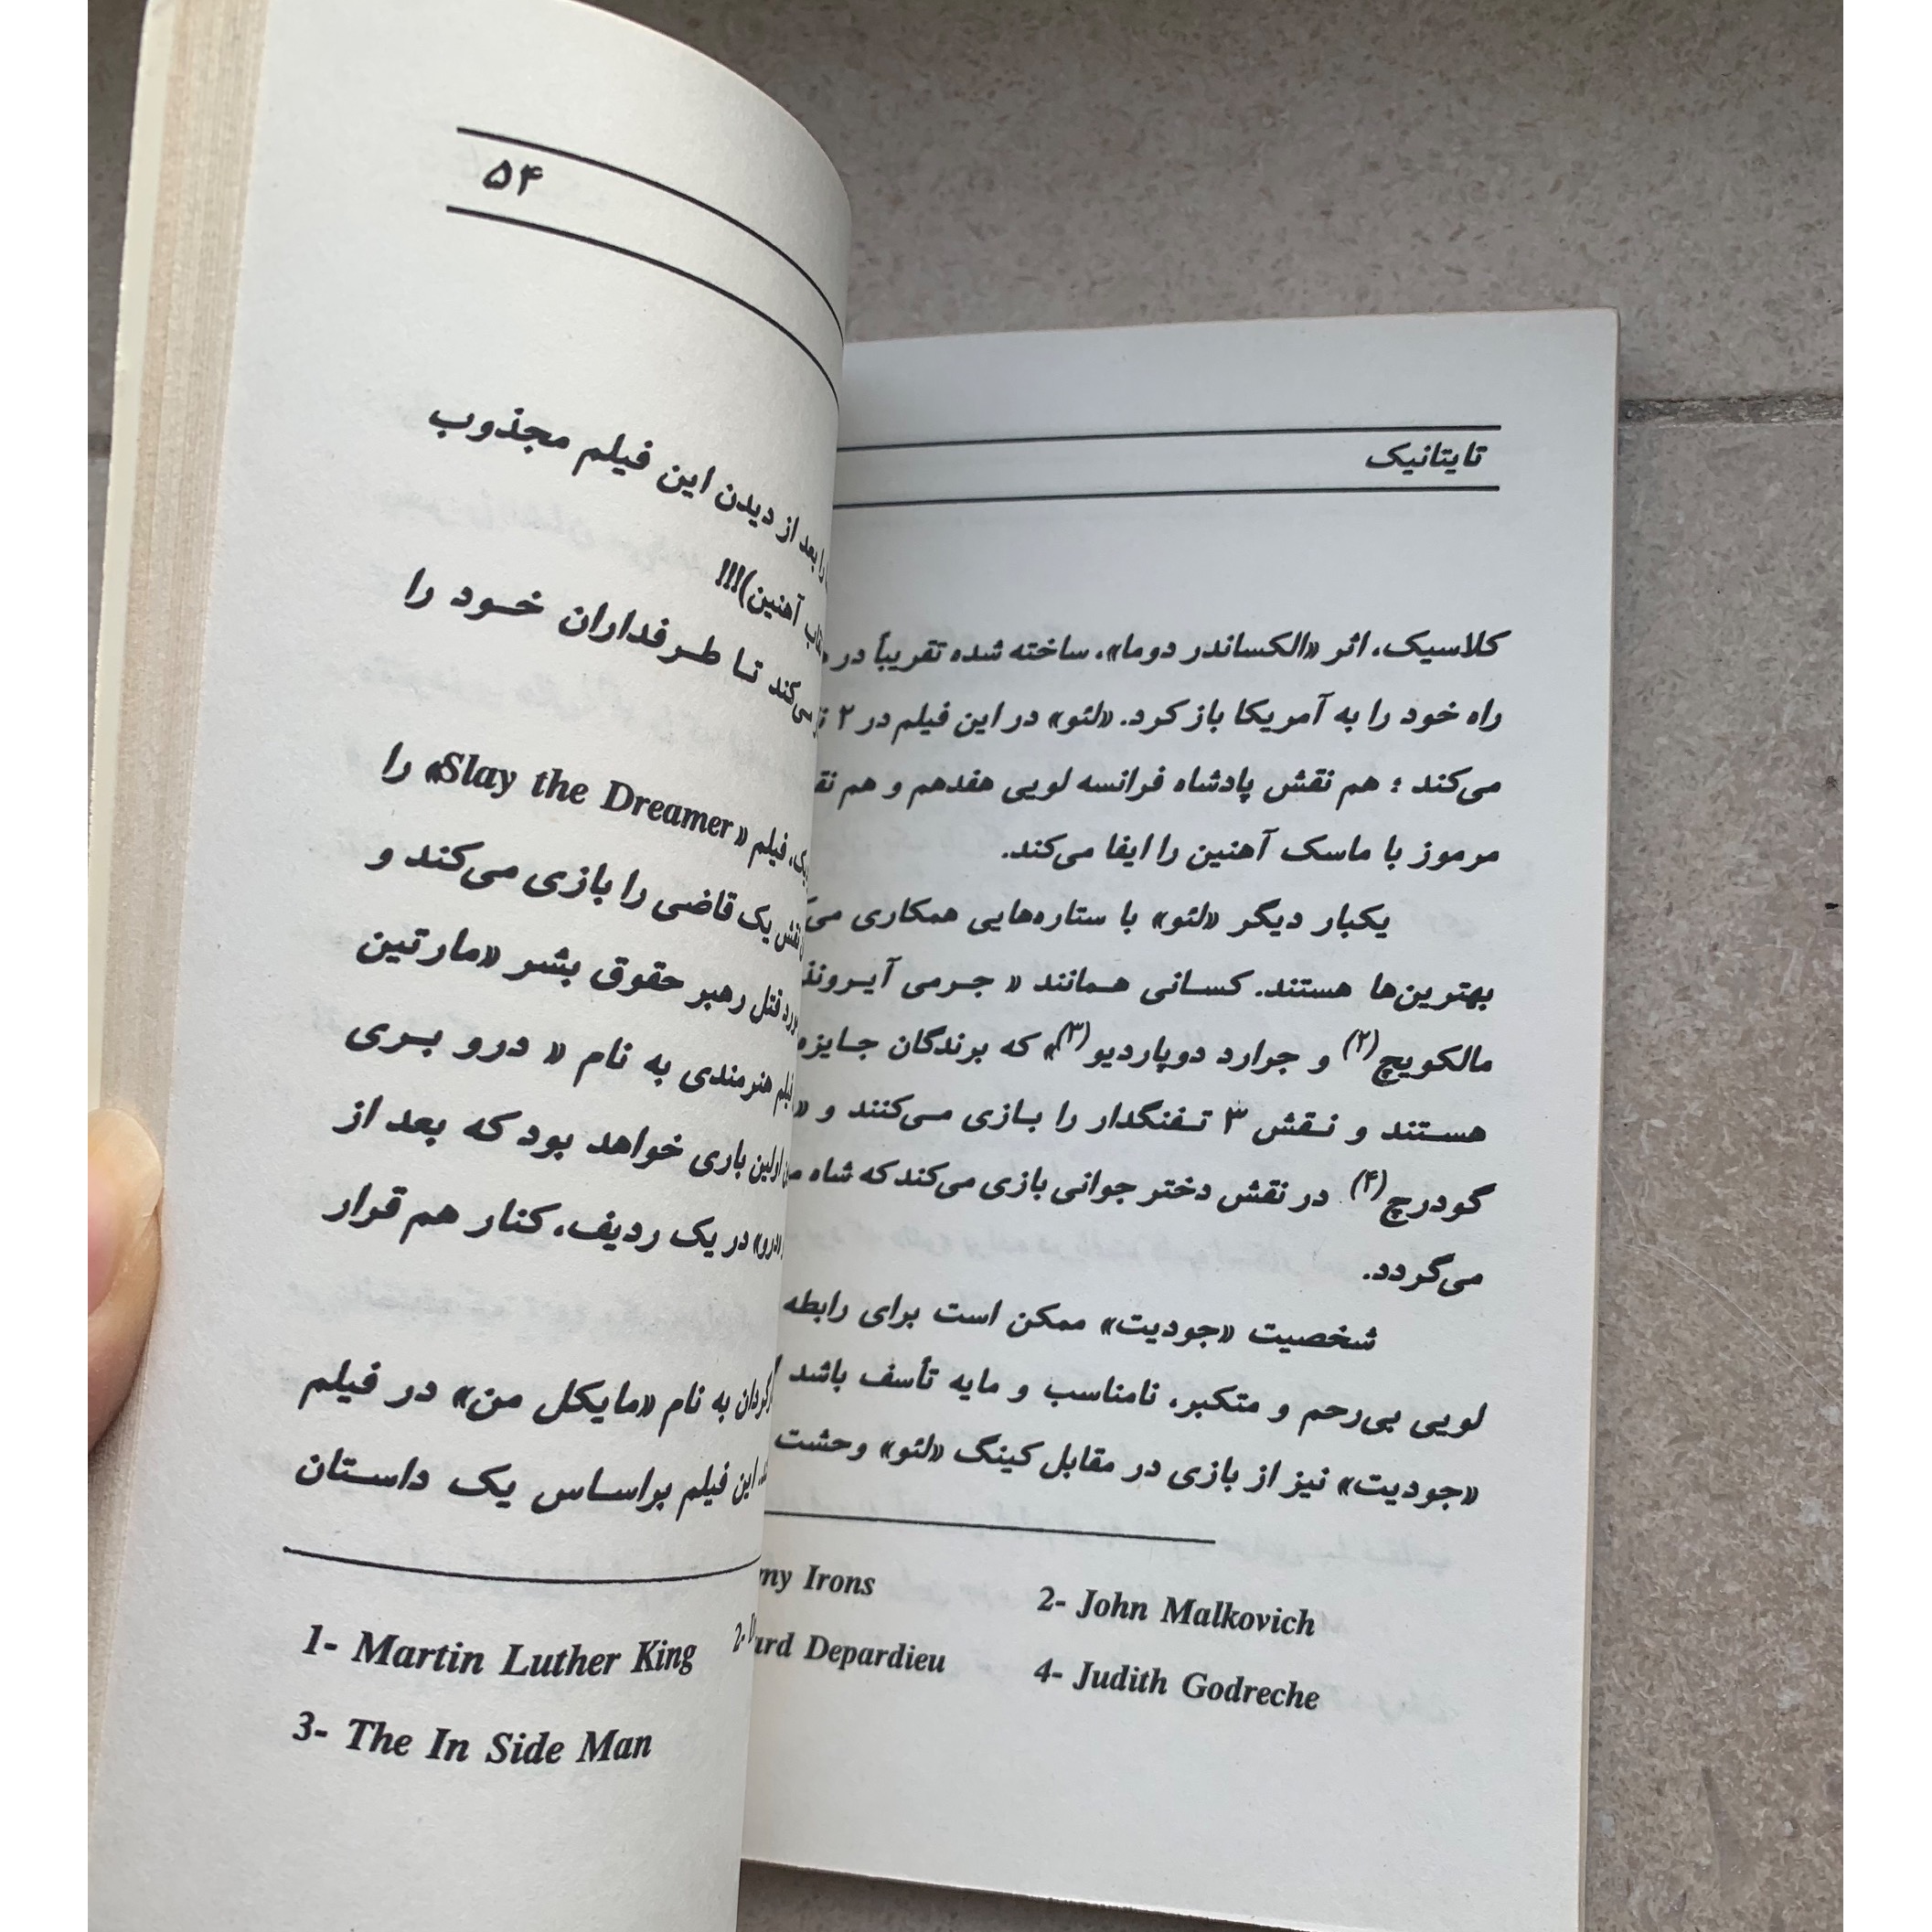 تایتانیک
کلاسیک، اثر «الکساندر دوما»، ساخته شده تقریباً در
راه خود را به آمریکا باز کرد. «لئو» در این فیلم در ۲
می‌کند ؛ هم نقش پادشاه فرانسه لویی هفدهم و هم
مرموز با ماسک آهنین را ایفا می‌کند.
یکبار دیگر «لئو» با ستاره‌هایی همکاری
بهترین‌ها هستند. کسانی همانند « جرمی
مالکویچ(۲) و جرارد دوپاردیو(۳)» که برندگان جایزه
هستند و نقش ۳ تفنگدار را بازی می‌کنند و «
گودرچ(۴) در نقش دختر جوانی بازی می‌کند که شاه
می‌گردد.
شخصیت «جودیت» ممکن است برای رابطه
لویی بی‌رحم و متکبر، نامناسب و مایه تأسف باشد
«جودیت» نیز از بازی در مقابل کینگ «لئو» وحشت
Irons
2- John Malkovich
Depardieu
4- Judith Godreche
۵۴
را بعد از دیدن این فیلم مجذوب
آهنین)!!!
می‌کند تا طرفداران خود را
فیلم «Slay the Dreamer» را
نقش یک قاضی را بازی می‌کند و
قتل رهبر حقوق بشر «مارتین
هنرمندی به نام « درو بری
اولین باری خواهد بود که بعد از
«درو» در یک ردیف، کنار هم قرار
به نام «مایکل من» در فیلم
این فیلم براساس یک داستان
1- Martin Luther King
2-
3- The In Side Man